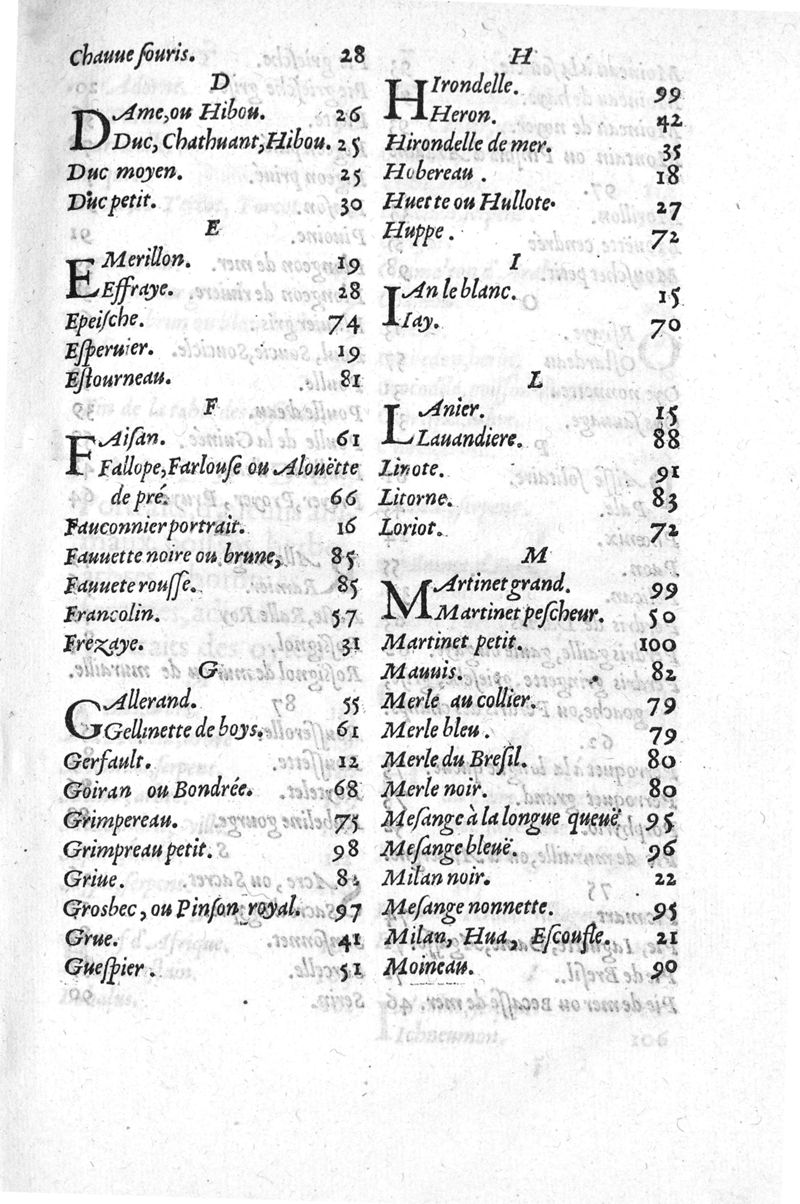 Chauue ſouris. 28
D
DAme, ou Hibou. 26
Duc, Chathuant, Hibou. 25
Duc moyen. 25
Duc petit. 30
E
EMerillon. 19
Effraye. 28
Epeiſche. 74
Eſperuier. 19
Eſtourneau. 81
F
FAiſan. 61
Fallope, Farlouſe ou Alouëtte
de pré. 66
Fauconnier portrait. 16
Fauuette noire ou brune, 85
Fauuete rouſſe. 85
Francolin. 57
Frezaye. 31
G
GAllerand. 55
Gellinette de boys. 61
Gerfault. 12
Goiran ou Bondrée. 68
Grimpereau. 75
Grimpreau petit. 98
Griue.
Grosbec, ou Pinſon royal. 97
Grue. 41
Gueſpier. 51
H
HIrondelle. 99
Heron. 42
Hirondelle de mer. 35
Hobereau. 18
Huette ou Hullote. 27
Huppe. 72
I
IAn le blanc. 15
Iay. 70
L
LAnier. 15
Lauandiere. 88
Linote. 91
Litorne. 83
Loriot. 72
M
MArtinet grand. 99
Martinet peſcheur. 50
Martinet petit. 100
Mauuis. 82
Merle au collier. 79
Merle bleu. 79
Merle du Breſil. 80
Merle noir. 80
Meſange à la longue queuë 95
Meſange bleuë. 96
Milan noir. 22
Meſange nonnette. 95
Milan, Hua, Eſcoufle. 21
Moineau. 90